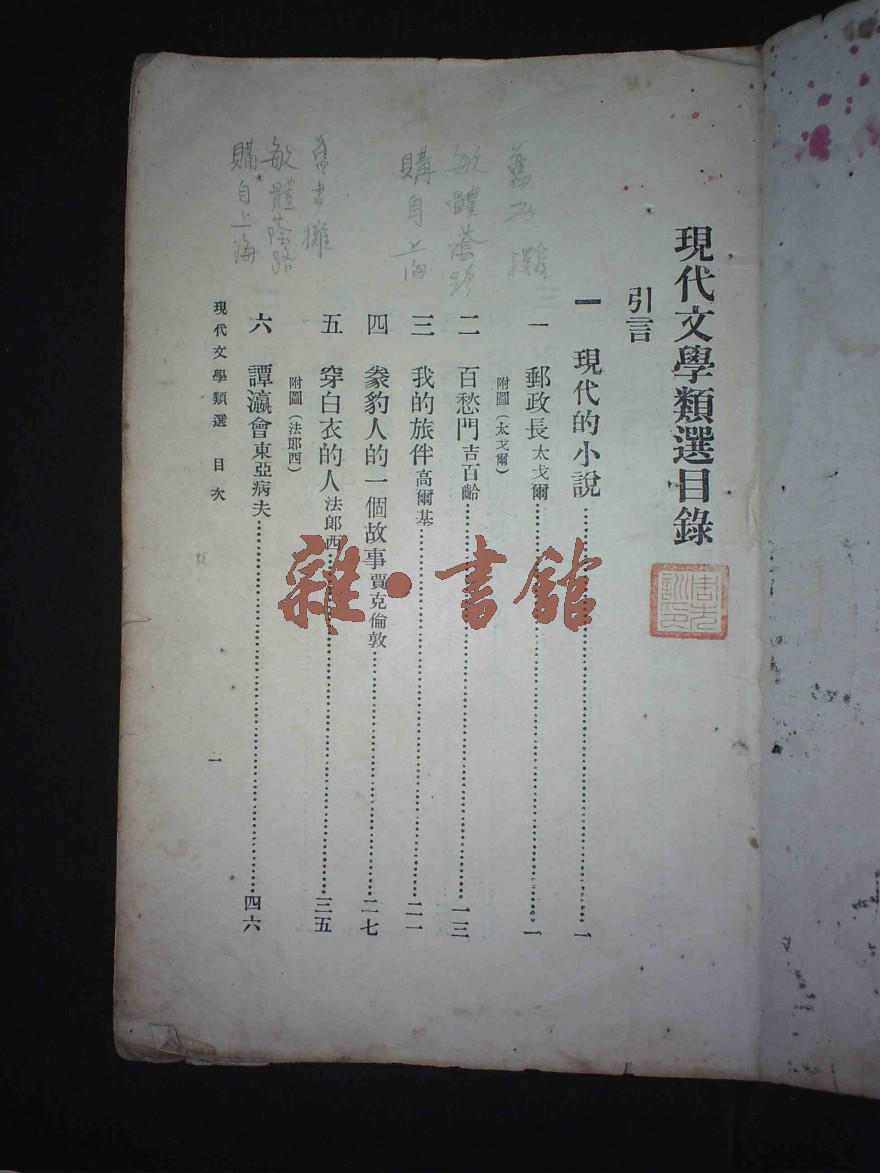 現代文學類選目錄
引言
一 現代的小說……一
一 郵政長 太戈爾……一
附圖(太戈爾)
二 百愁門 吉百齡……一三
三 我的旅伴 高爾基……二一
四 豢豹人的一個故事 賈克倫敦……二七
五 穿白衣的人 法郎西……三五
附圖(法郎西)
六 譚瀛會 東亞病夫……四六
現代文學類選 目次
一
舊書攤
敏體蔭路
購自上海
舊書攤
敏體蔭路
購自上海
雜·書館